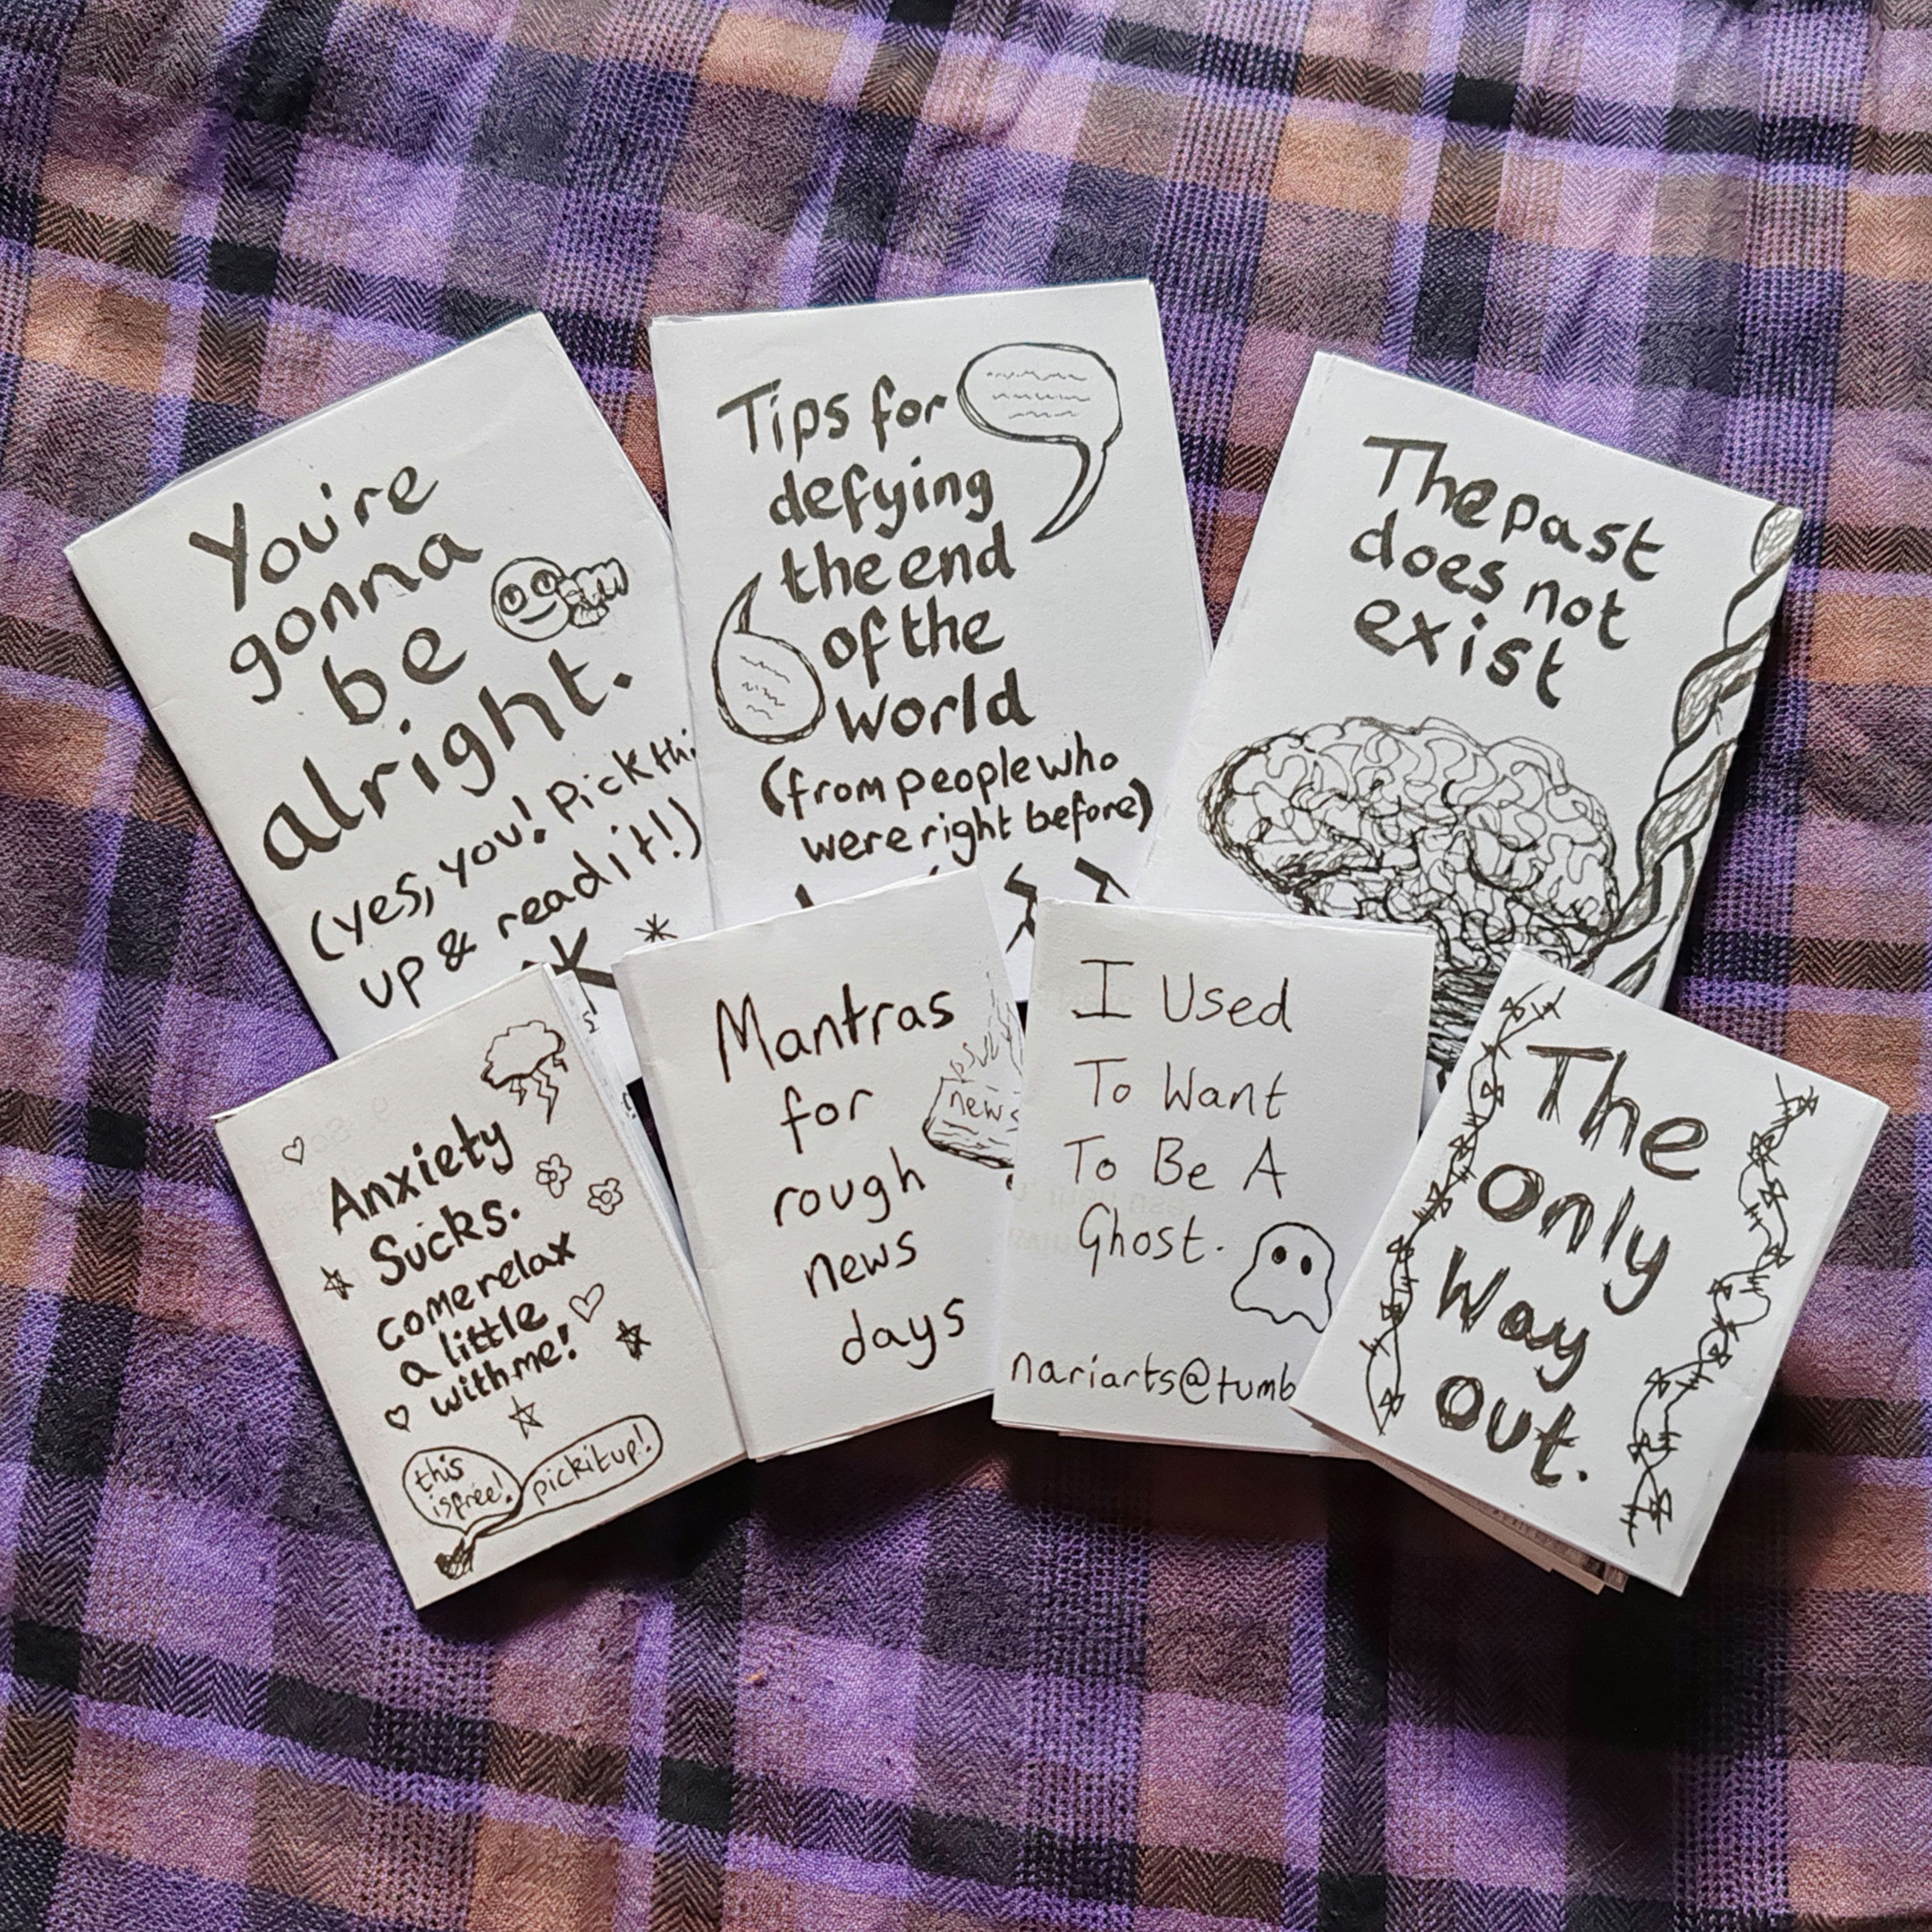 You're
gonna
be
alright.
(yes, you! Pick thi
up & read it!)
Tips for
defying
the end
of the
world
(from people who
were right before)
The past
does not
exist
Anxiety
Sucks.
come relax
a little
with me!
this
is free!
pick it up!
Mantras
for
rough
news
days
news
I Used
To Want
To Be A
Ghost.
nariarts@tumb
The
Only
Way
Out.